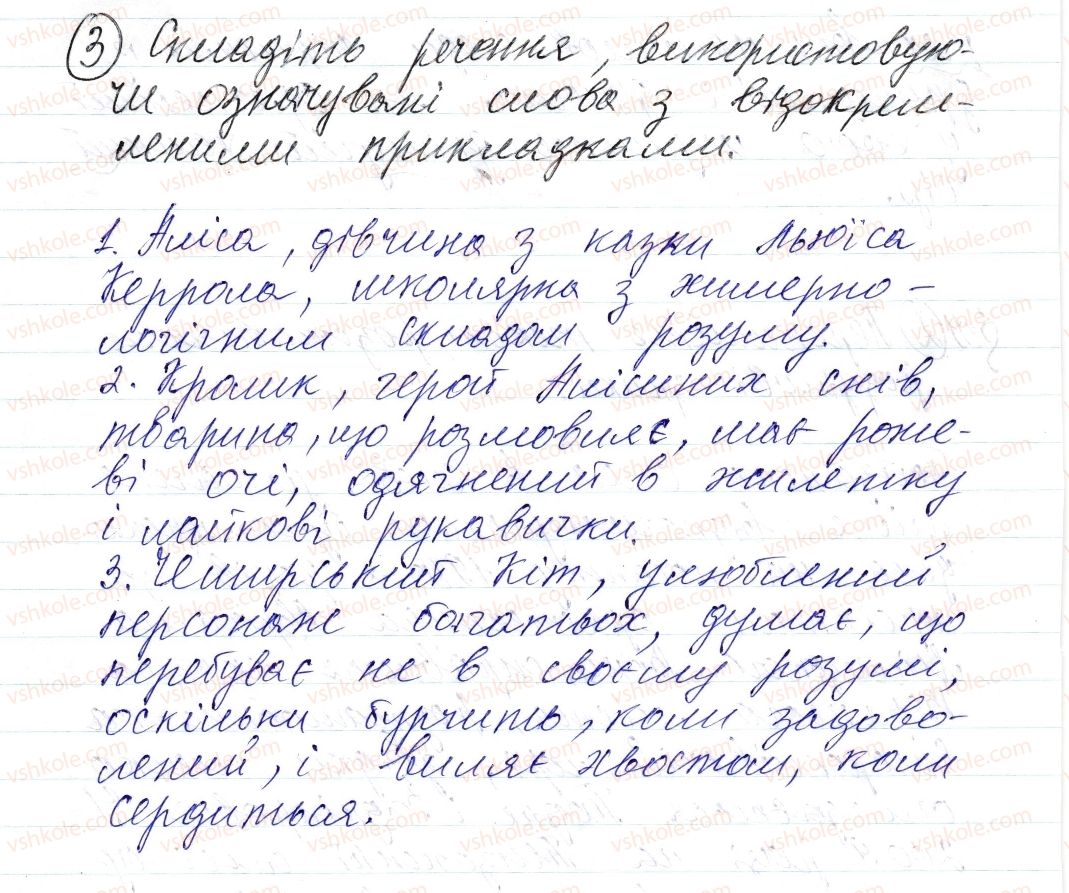 3 Складіть речення, використовую-
чи означувані слова з відокрем-
леними прикладками.
1. Аліса, дівчина з казки Льюїса
Керрола, школярка з химерно-
логічним складом розуму.
2. Кролик, герой Алісиних снів,
тварина, що розмовляє, має роже-
ві очі, одягнений в жилетку
і лайкові рукавички.
3. Чеширський Кіт, улюблений
персонаж багатьох, думає, що
перебуває не в своєму розумі,
оскільки бурчить, коли задово-
лений, і виляє хвостом, коли
сердиться.